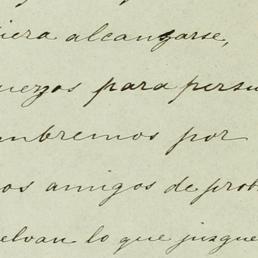 iera alcanzarse,
uerzos para persu
mbremos por
os amigos de prob
elvan lo que juzgue